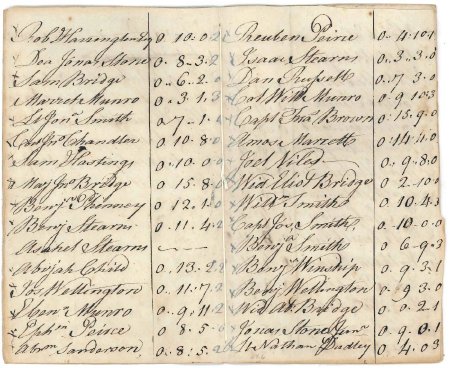 Rob.t Harrington Esq 0.10.0.2
Dea Jonas Stone 0.8.3.2
Sam Bridge 0.6.2.0
Marret Munro 0.3.1.3
Lt Jon.n Smith 0.7.1.
Capt Jno Chandler 0.10.8.0
Sam Hastings 0.10.0.0
Maj Jno Bridge 0.15.8.0
Benj.n Phinney 0.12.1.0
Benj Stearns 0.11.4.2
Asahel Stearns —
Abijah Child 0.13.2.2
Jos Wellington 0.11.7.2
Eben Munro 0.9.11.2
Eph.m Peirce 0.8.5.6
Abr.m Sanderson 0.8.5.2
Reuben Peirce 0.4.10.1
Isaac Stearns 0.3.3.0
Dan Russell 0.7.3.0
Col Will Munro 0.9.10.3
Capt Fra.s Brown 0.15.9.0
Amos Marrett 0.14.4.0
Joel Viles 0.9.8.0
Wid Eliot Bridge 0.2.10.0
Will Smith 0.10.4.3
Capt Jos Smith 0.10.0.0
Benj Smith 0.6.9.3
Benj Winship 0.9.3.1
Benj Wellington 0.9.3.0
Wid Ab Bridge 0.0.2.1
Jonas Stone Jun.r 0.9.0.1
Lt Nathan Dudley 0.4.03